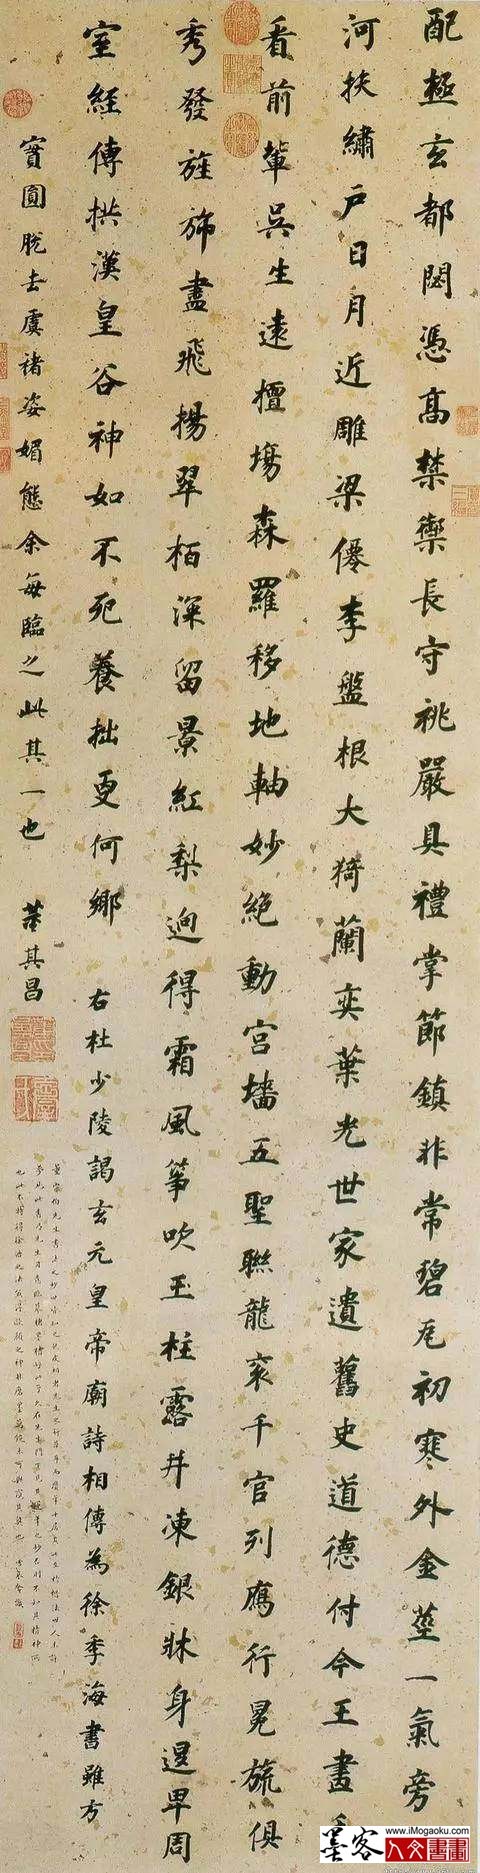 配極玄都閟憑高禁禦長守祧嚴具禮掌節鎮非常碧瓦初寒外金莖一氣旁山
河扶繡戶日月近雕梁僊李盤根大猗蘭奕葉光世家遺舊史道德付今王畫手
看前輩吳生遠擅場森羅移地軸妙絕動宮墻五聖聯龍衮千官列鴈行冕旒俱
秀發旌旆盡飛揚翠栢深留景紅梨迥得霜風箏吹玉柱露井凍銀牀身退卑周
室經傳拱漢皇谷神如不死養拙更何鄉 右杜少陵謁玄元皇帝廟詩相傳為徐季海書雖方
實圓脫去虞褚姿媚態余每臨之此其一也 董其昌
墨客人文書畫
www.iMogaoku.com